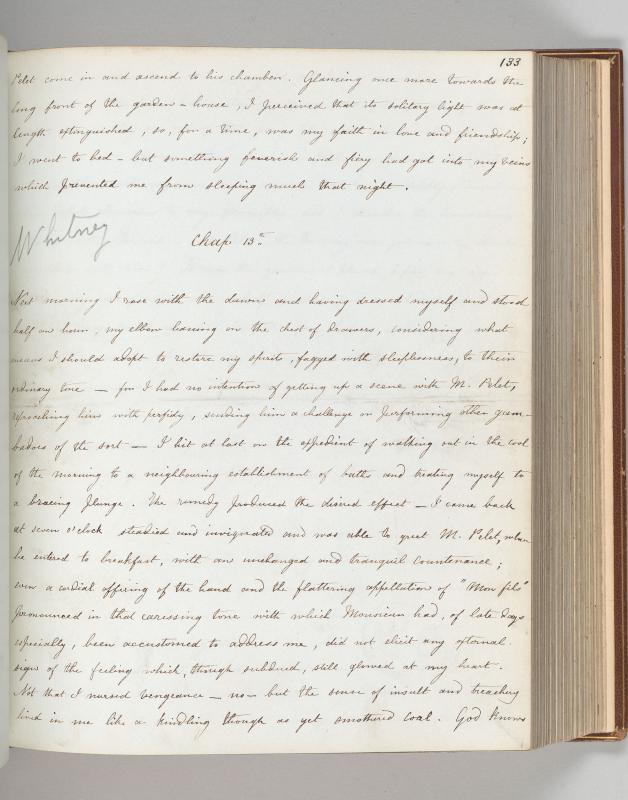 133
Pelet come in and ascend to his chamber. Glancing once more towards the
long front of the garden-house, I perceived that its solitary light was at
length extinguished, so, for a time, was my faith in love and friendship;
I went to bed - but something feverish and fiery had got into my veins
which prevented me from sleeping much that night.
Whitney
Chap 13th
Next morning I rose with the dawn and having dressed myself and stood
half an hour, my elbow leaning on the chest of drawers, considering what
means I should adopt to restore my spirits, fagged with sleeplessness, to their
ordinary tone — for I had no intention of getting up a scene with M. Pelet,
reproaching him with perfidy, sending him a challenge or performing other gam-
badoes of the sort — I hit at last on the expedient of walking out in the cool
of the morning to a neighbouring establishment of baths and treating myself to
a bracing plunge. The remedy produced the desired effect — I came back
at seven o'clock steadied and invigorated and was able to greet M. Pelet, when
he entered to breakfast, with an unchanged and tranquil countenance;
even a cordial offering of the hand and the flattering appellation of "Mon fils"
pronounced in that caressing tone with which Monsieur had, of late days
especially, been accustomed to address me, did not elicit any external
sign of the feeling which, though subdued, still glowed at my heart.
Not that I nursed vengeance — no — but the sense of insult and treachery
lived in me like a kindling though as yet smothered coal. God knows